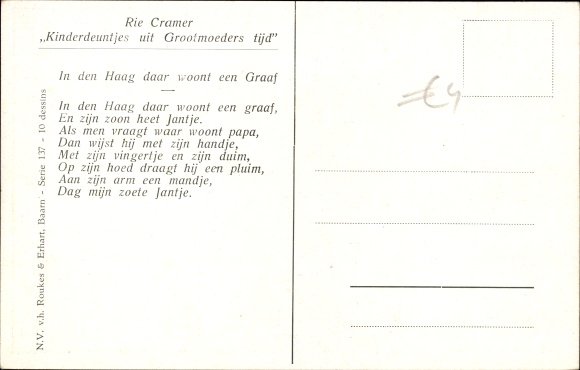 Rie Cramer
„Kinderdeuntjes uit Grootmoeders tijd”
In den Haag daar woont een Graaf
In den Haag daar woont een graaf,
En zijn zoon heet Jantje.
Als men vraagt waar woont papa,
Dan wijst hij met zijn handje,
Met zijn vingertje en zijn duim,
Op zijn hoed draagt hij een pluim,
Aan zijn arm een mandje,
Dag mijn zoete Jantje.
N.V. v.h. Roukes & Erhart, Baarn - Serie 137 - 10 dessins
€4